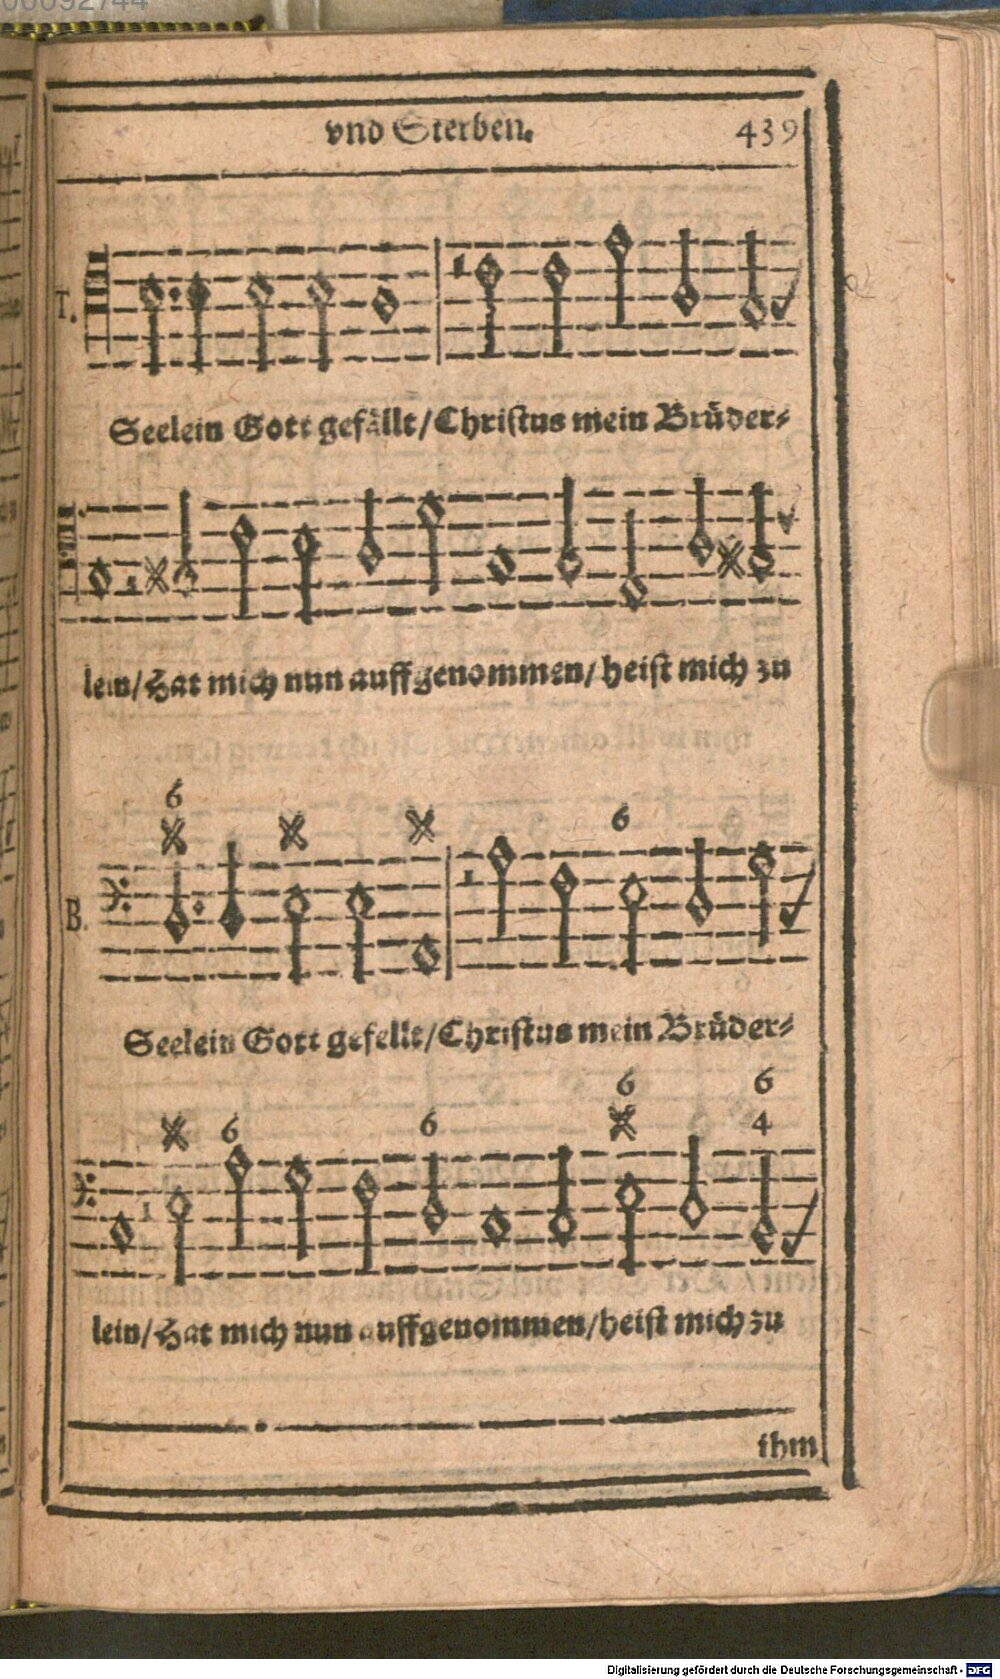 00092744
vnd Sterben. 439
T.
Seelein Gott gefällt/Christus mein Brüder⸗
lein/Hat mich nun auffgenommen/heist mich zu
6
6
B.
Seelein Gott gefellt/Christus mein Brüder⸗
6 6
6 6 4
lein/Hat mich nun auffgenommen/heist mich zu
ihm
Digitalisierung gefördert durch die Deutsche Forschungsgemeinschaft - DFG